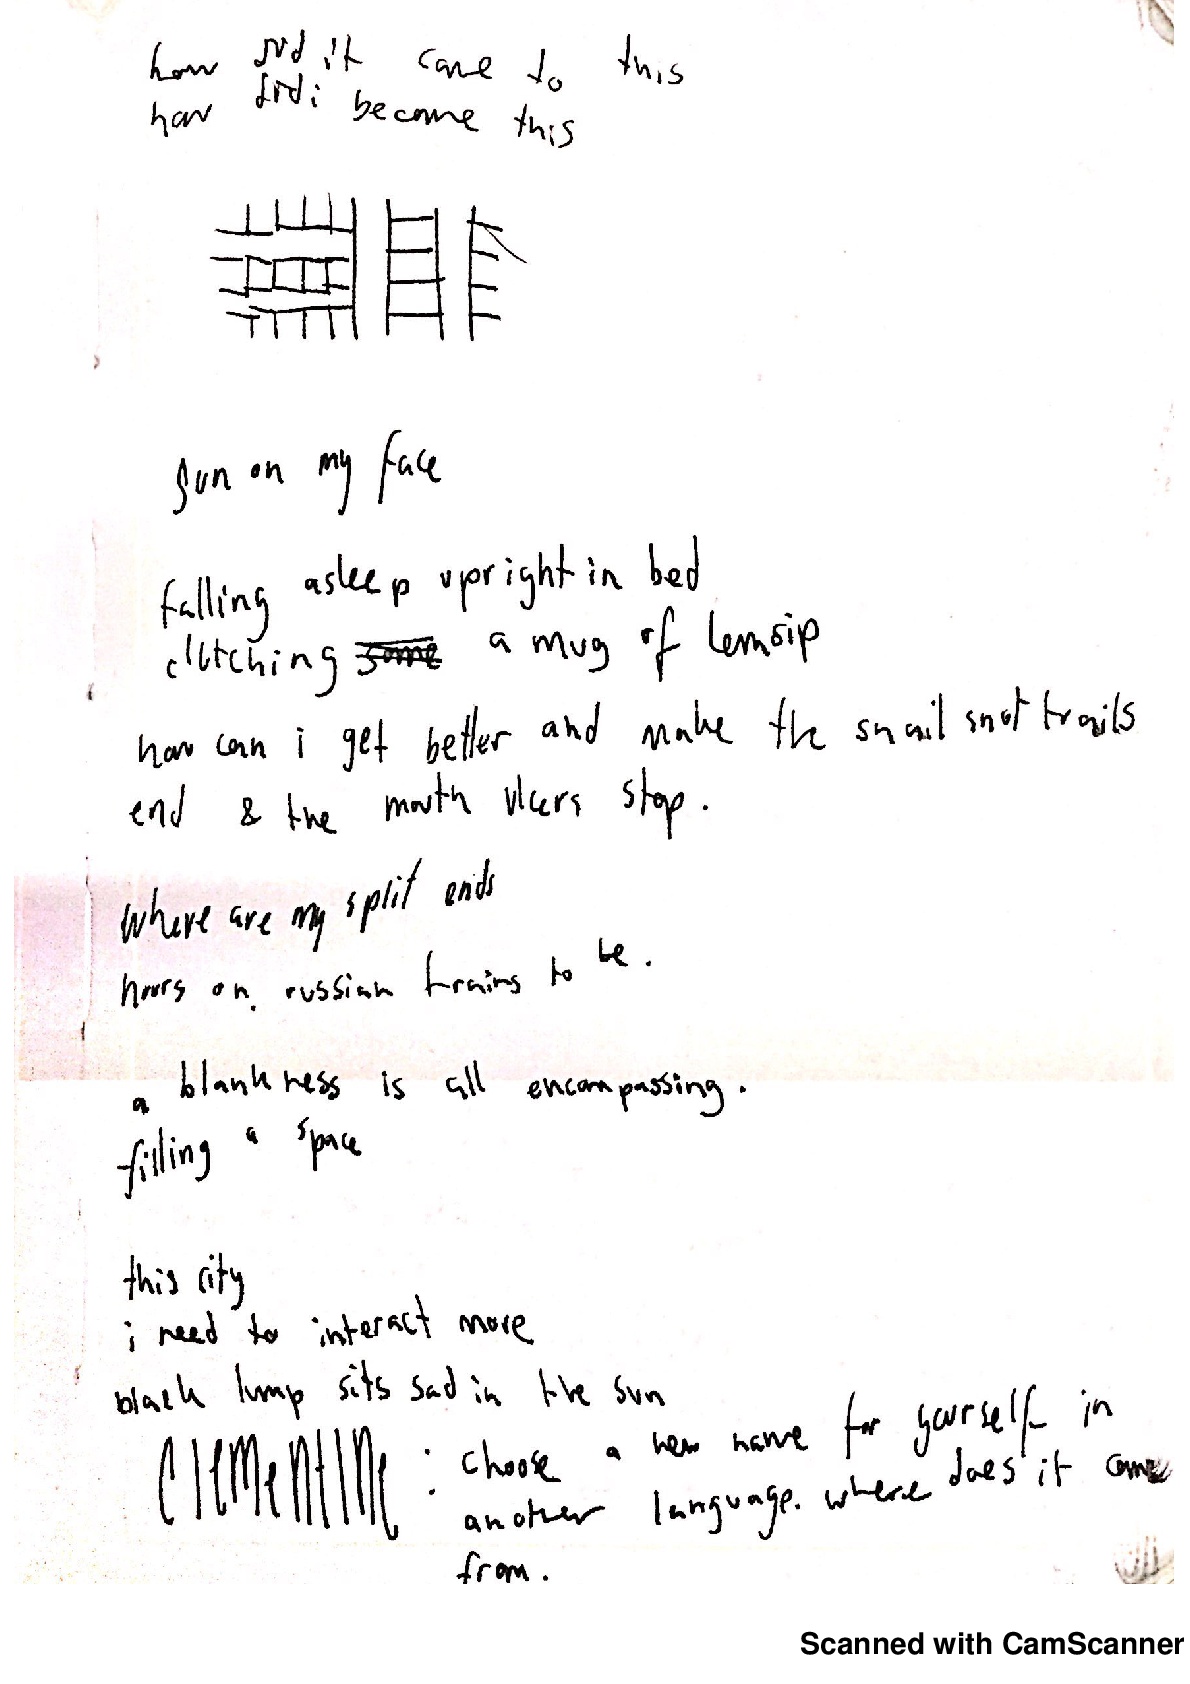 how did it come to this
how did i become this
sun on my face
falling asleep upright in bed
clutching some a mug of lemsip
how can i get better and make the snail snot trails
end & the mouth ulcers stop.
where are my split ends
hours on russian trains to be.
a blankness is all encompassing.
filling a space
this city
i need to interact more
black lump sits sad in the sun
CleMeNtINe : choose a new name for yourself in
another language. where does it come
from.
Scanned with CamScanner